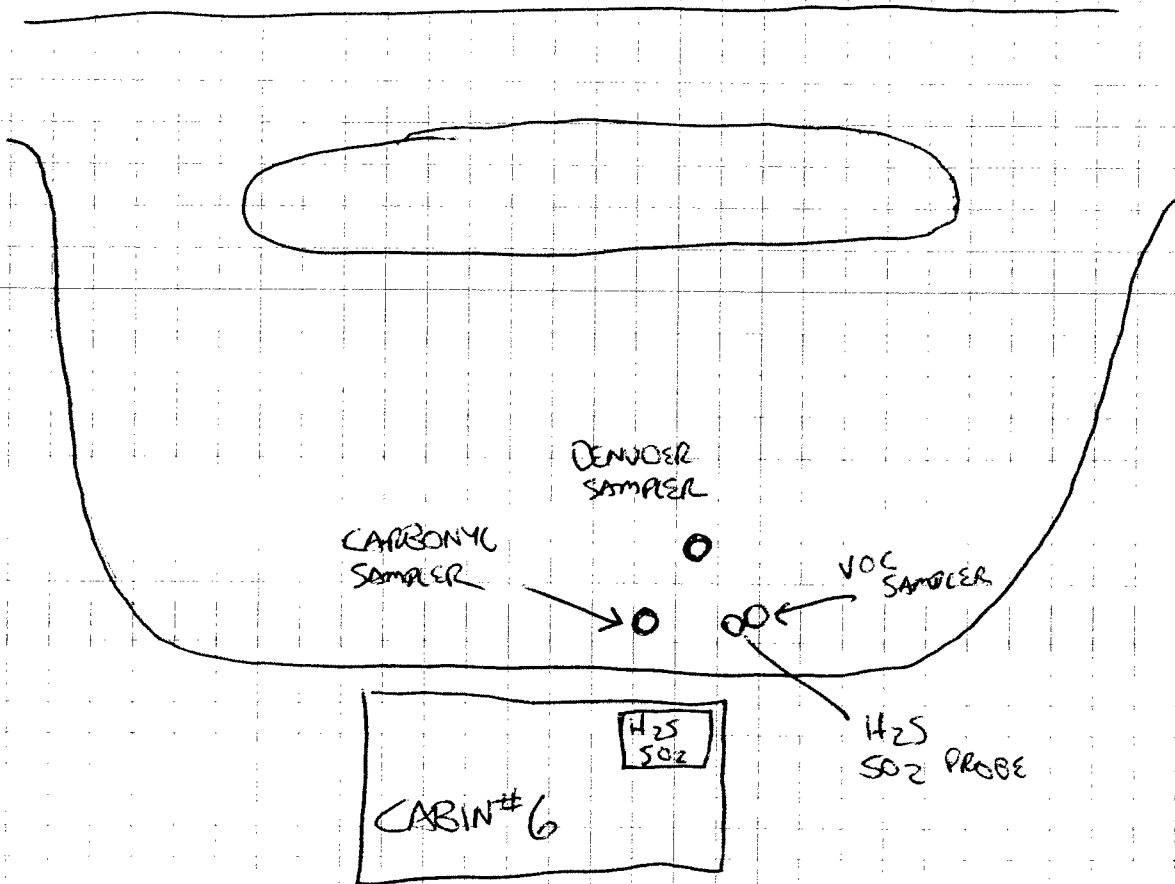 DENUDER
SAMPLER
CARBONYL
SAMPLER
VOC
SAMPLER
H2S
SO2
H2S
SO2 PROBE
CABIN #6